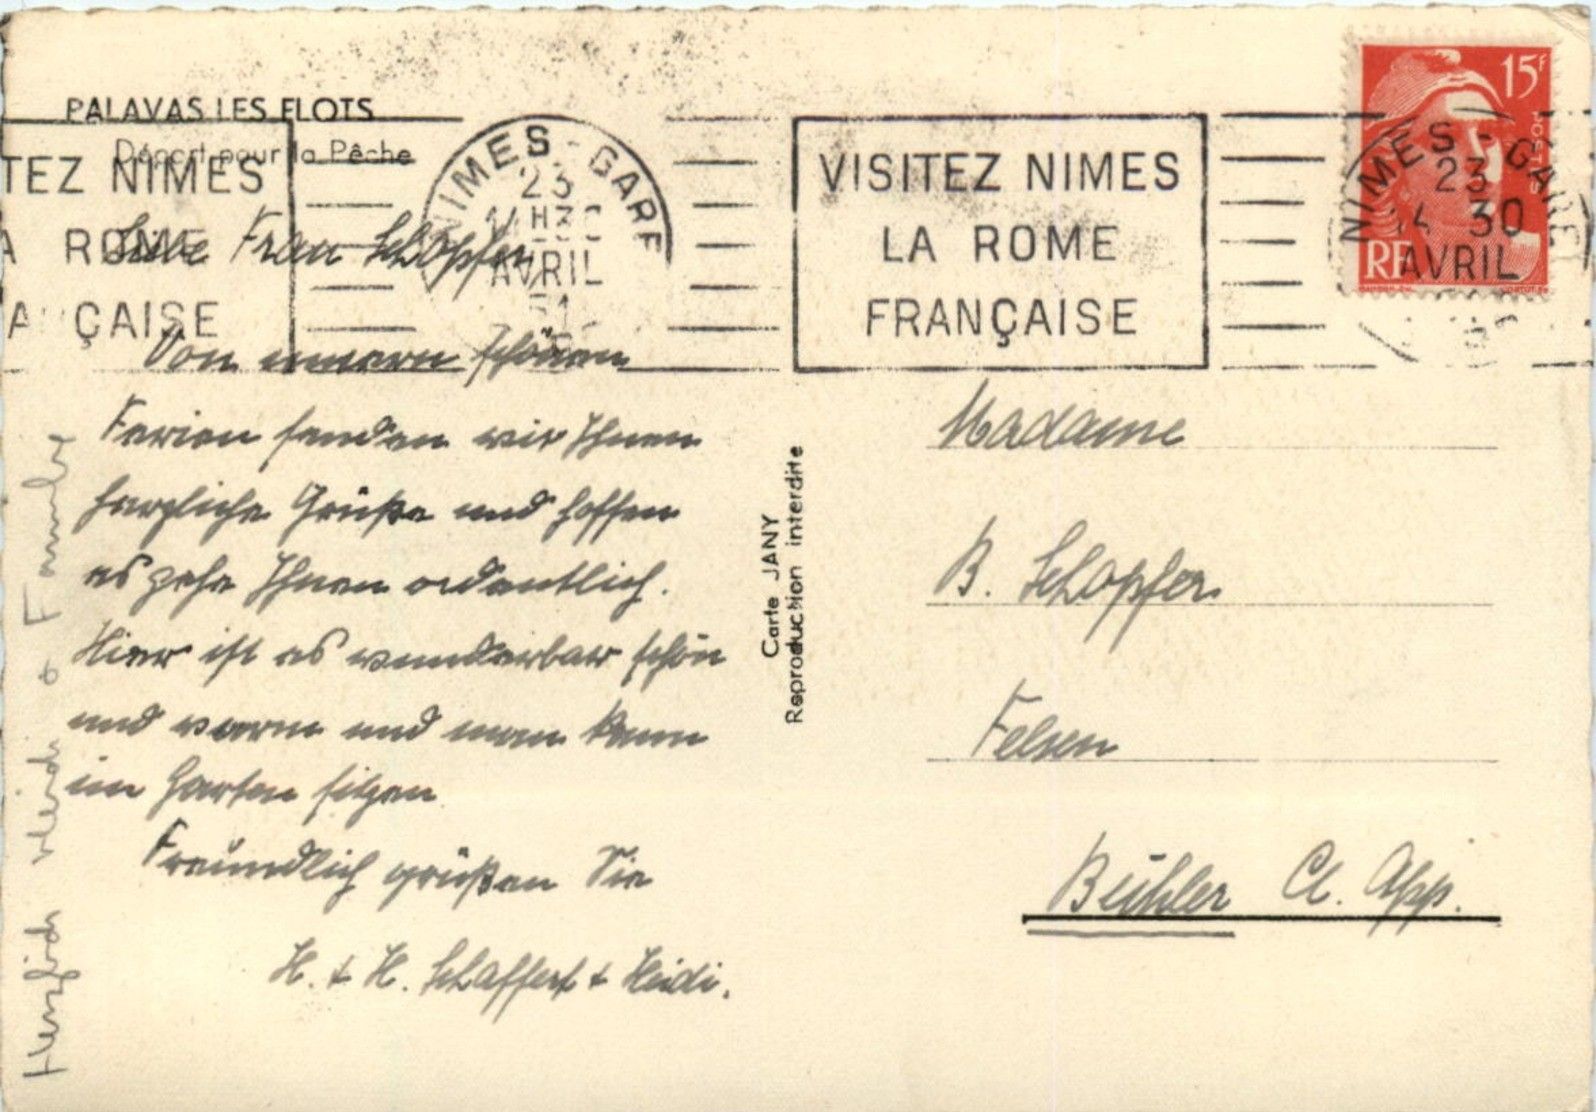 PALAVAS LES FLOTS
Départ pour la Pêche
TEZ NIMES
A ROME
A ÇAISE
NIMES - GARE
23
14H30
AVRIL
51
VISITEZ NIMES
LA ROME
FRANÇAISE
15F
POSTES
RF
NIMES - GARE
23
14 30
AVRIL
Liebe Frau Schopfer,
Von unsern schönen
Ferien senden wir Ihnen
herzliche Grüße und hoffen
es gehe Ihnen ordentlich.
Hier ist es wunderbar schön
und warm und man kann
im Garten sitzen.
Freundlich grüßen Sie
H. + H. Schaffert + Heidi.
Herzlich Heidi + Familie
Carte JANY
Reproduction interdite
Madame
B. Schopfer
Felsen
Bühler Ct. App.